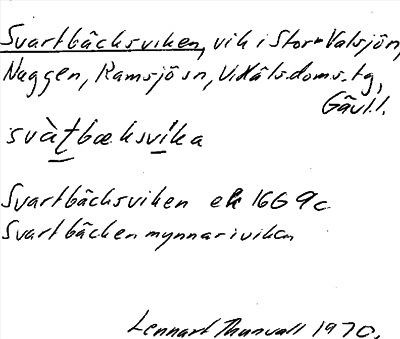 Svartbäcksviken, vik i Stor-Valsjön,
Naggen, Ramsjö sn, Ljusdals doms.tg,
Gävl.l.
svàt̲bæksvi̲ka
Svartbäcksviken ek 16G 9c
Svartbäcken mynnar i viken
Lennart Thunvall 1970.